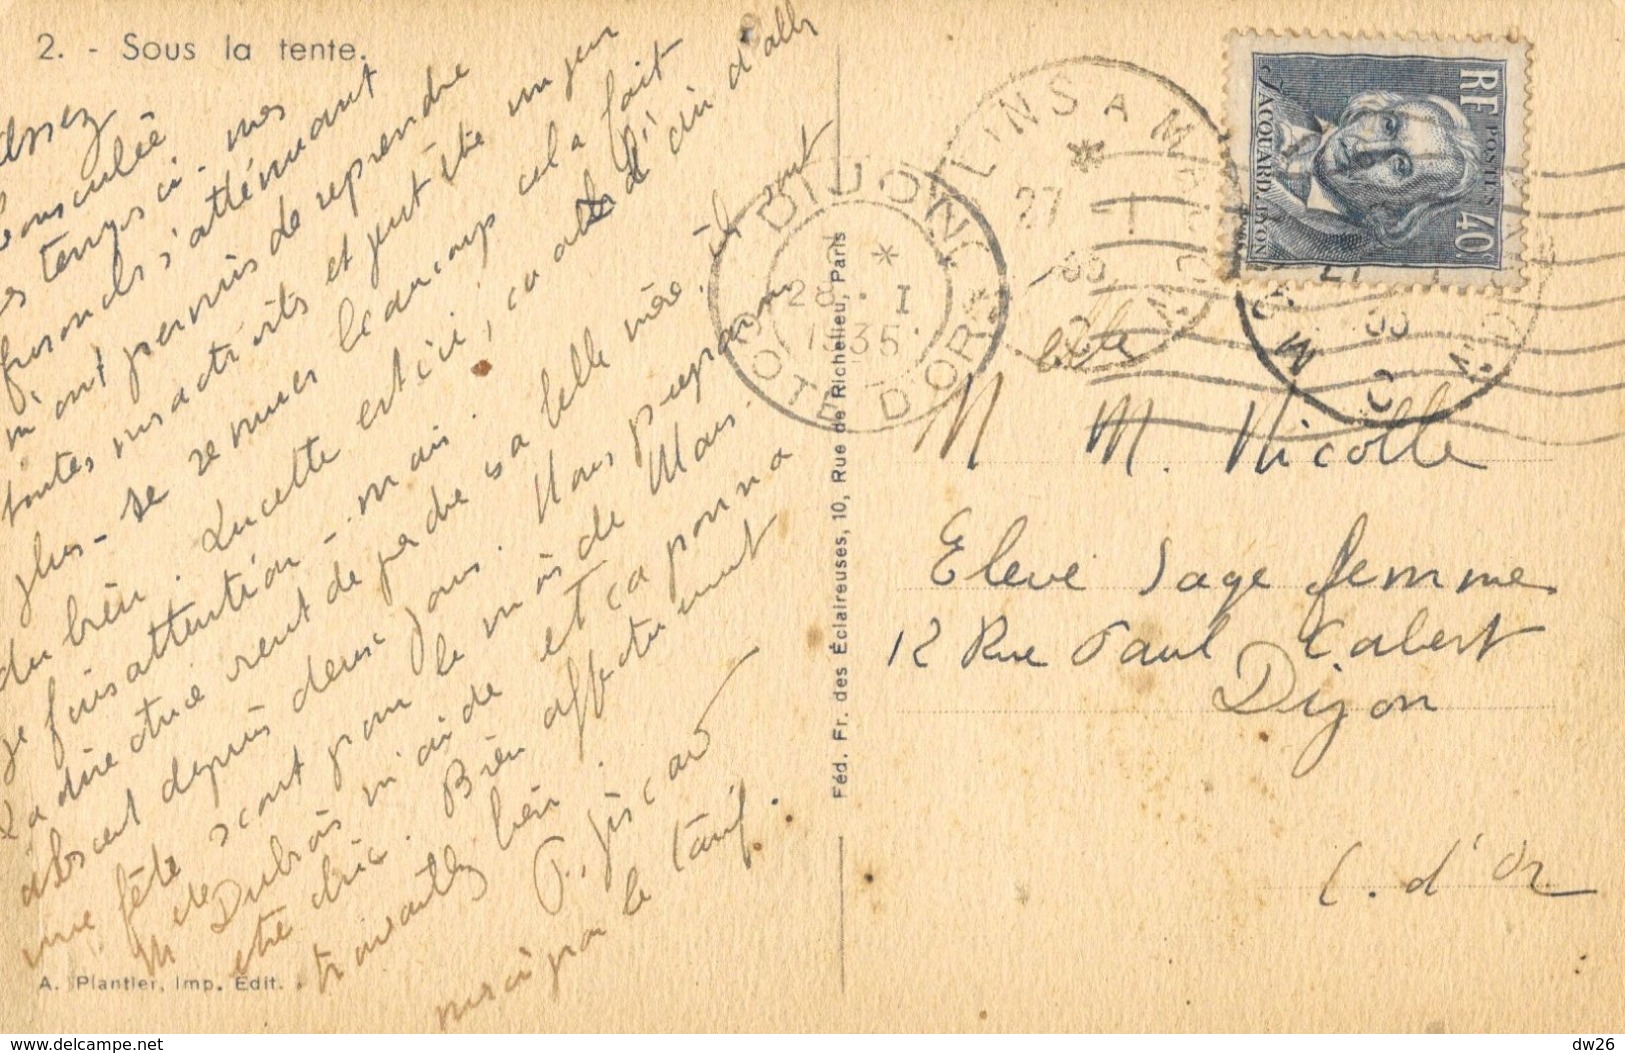 2. - Sous la tente.
assez
bousculée
ces temps ci. mes
furoncles s'atténuant
m'ont permis de reprendre
toutes mes activités et peut être un peu
plus - se remuer beaucoup cela fait
du bien. Lucette est ici, ça a l'air d'aller
je fais attention - mais.
La directrice vient de perdre sa belle mère. ils sont
absent depuis deux jours. Nous préparons
une fête scout pour le mois de Mars.
Mr Dubois m'aide et ça pourra
être chic. Bien affectueusement
travaillez bien.
merci pour le tarif.
A. Plantier, Imp. Edit.
Féd. Fr. des Éclaireuses, 10, Rue de Richelieu, Paris
DIJON
CÔTE D'OR
28 · I
1935
27 - 1
RF
POSTES
40c
JACQUARD, LYON
Melle M. Nicolle
Eleve Sage femme
12 Rue Paul Cabet
Dijon
C. d'Or
delcampe.net
dw26